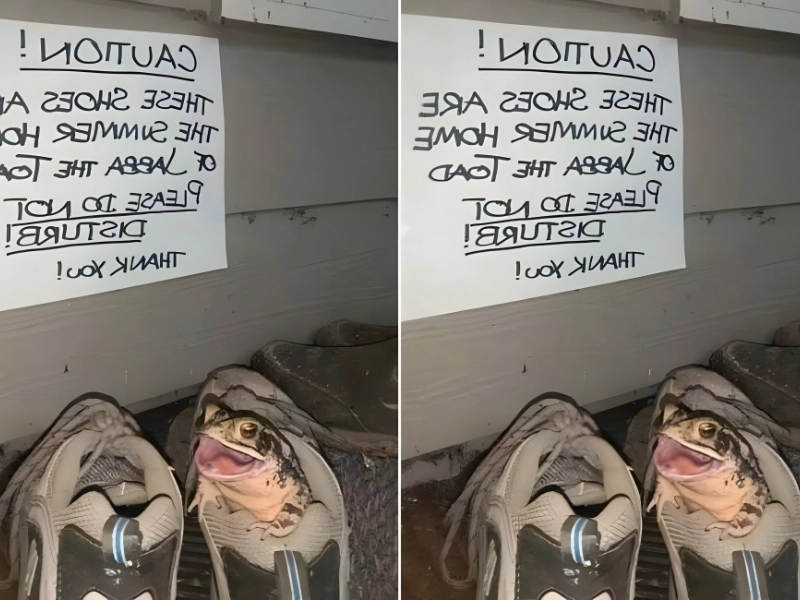 CAUTION!
THESE SHOES AR
THE SUMMER HO
OF JABBA THE TOA
PLEASE DO NOT
DISTURB!
THANK YOU!
CAUTION!
THESE SHOES ARE
THE SUMMER HOME
OF JABBA THE TOAD
PLEASE DO NOT
DISTURB!
THANK YOU!